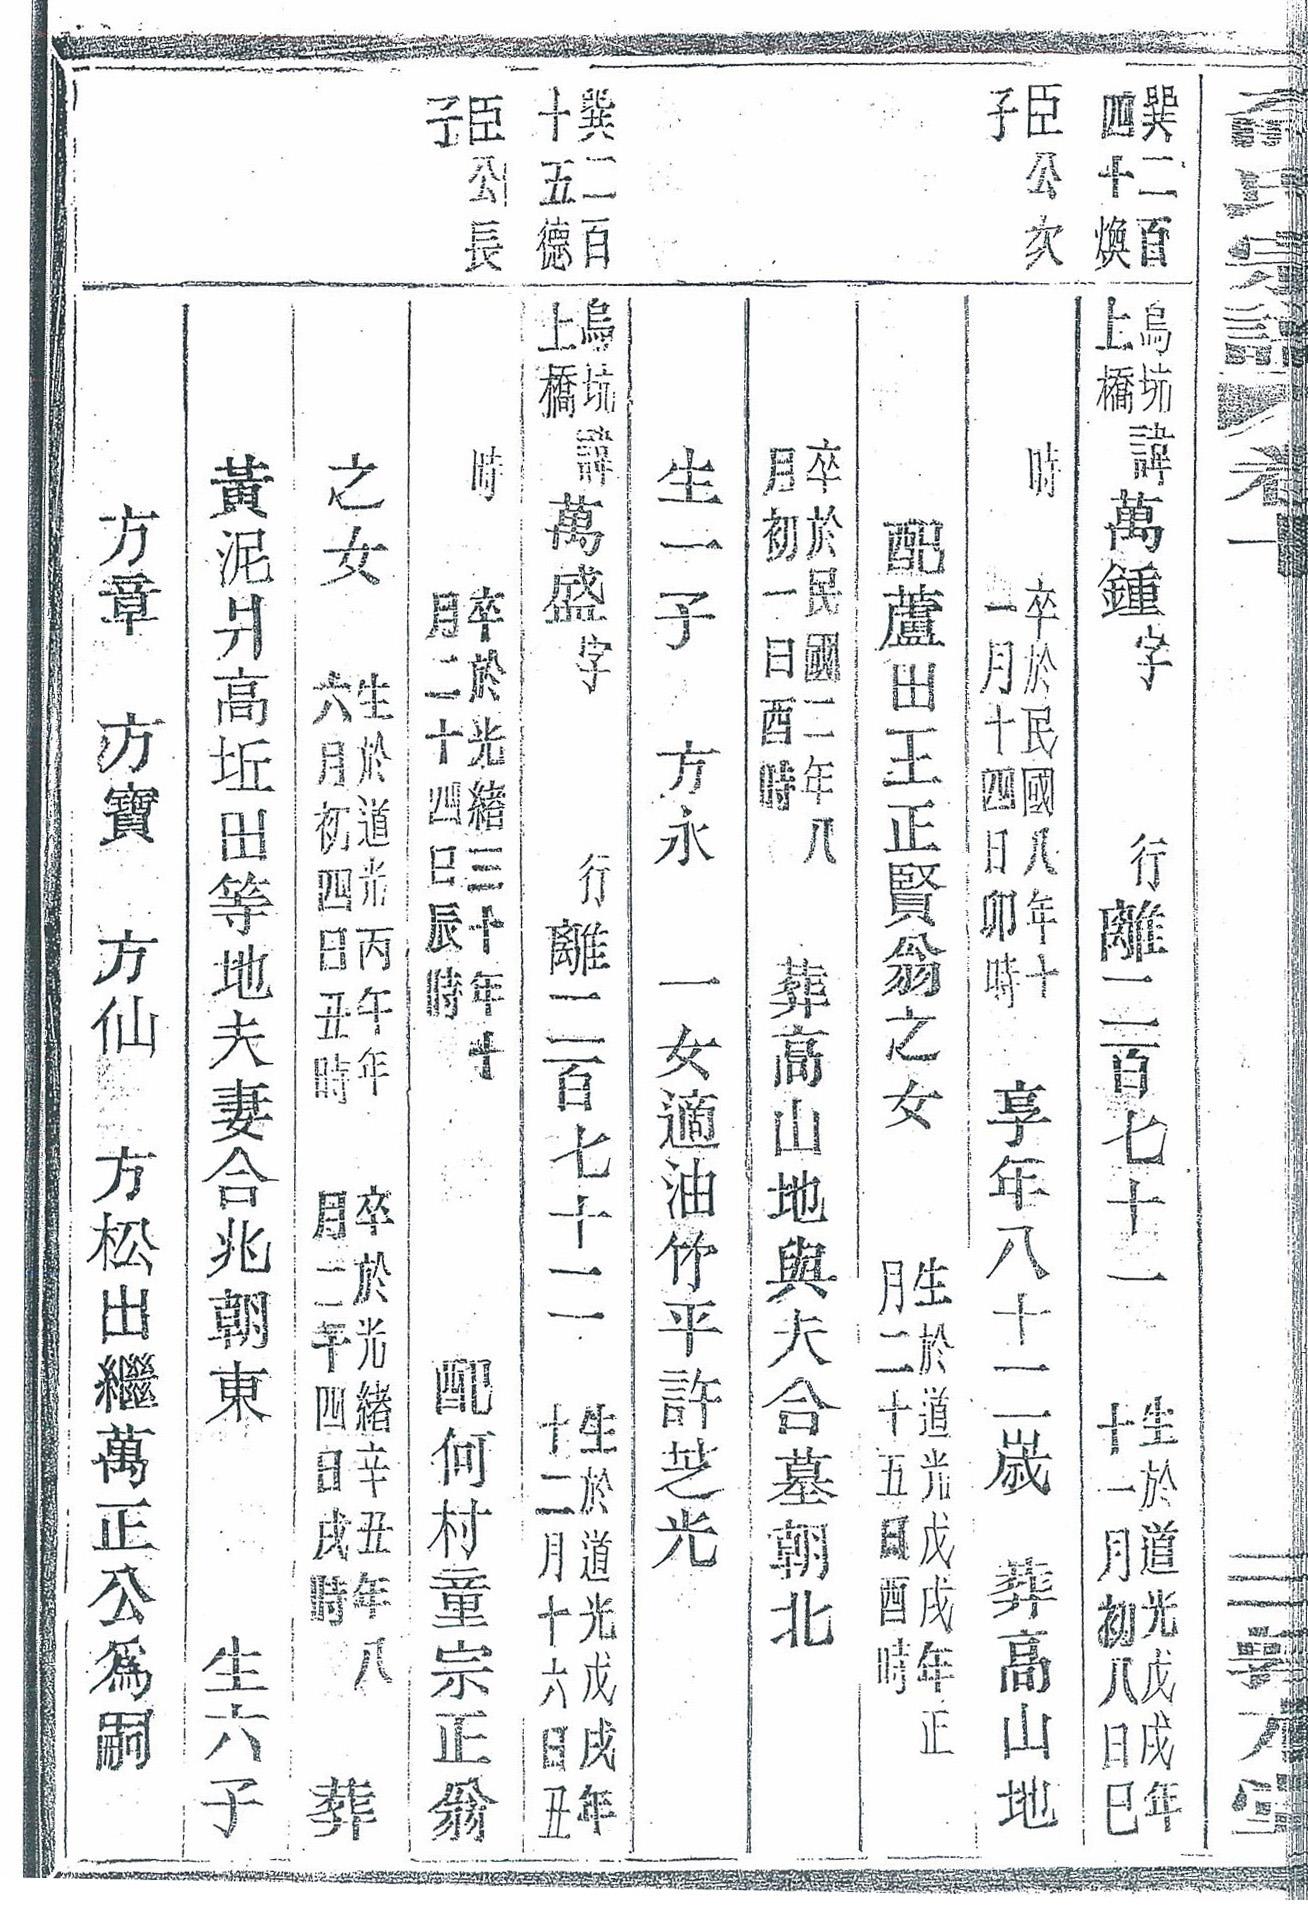 氏宗譜 卷一
巽二百
四十煥
臣公次
子
巽二百
十五德
臣公長
子
烏坑
上橋
諱萬鍾字 行離二百七十一
生於道光戊戌年
十一月初八日巳
時
卒於民國八年十
一月十四日卯時
享年八十二歲 葬高山地
配蘆出王正賢翁之女
生於道光戊戌年正
月二十五日酉時
卒於民國二年八
月初一日酉時
葬高山地與夫合墓朝北
生一子 方永 一女適油竹平許芝光
烏坑
上橋
諱萬盛字 行離二百七十二
生於道光戊戌年
十二月十六日丑
時
卒於光緒三十年十
月二十四巳辰時
配何村童宗正翁
之女
生於道光丙午年
六月初四日丑時
卒於光緒辛丑年八
月二十四日戌時
葬
黃泥爿高坵出等地夫妻合兆朝東 生六子
方章 方寶 方仙 方松出繼萬正公爲嗣